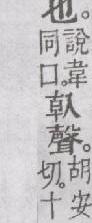 也。
說韋
同口。
倝聲。
胡安
切。十